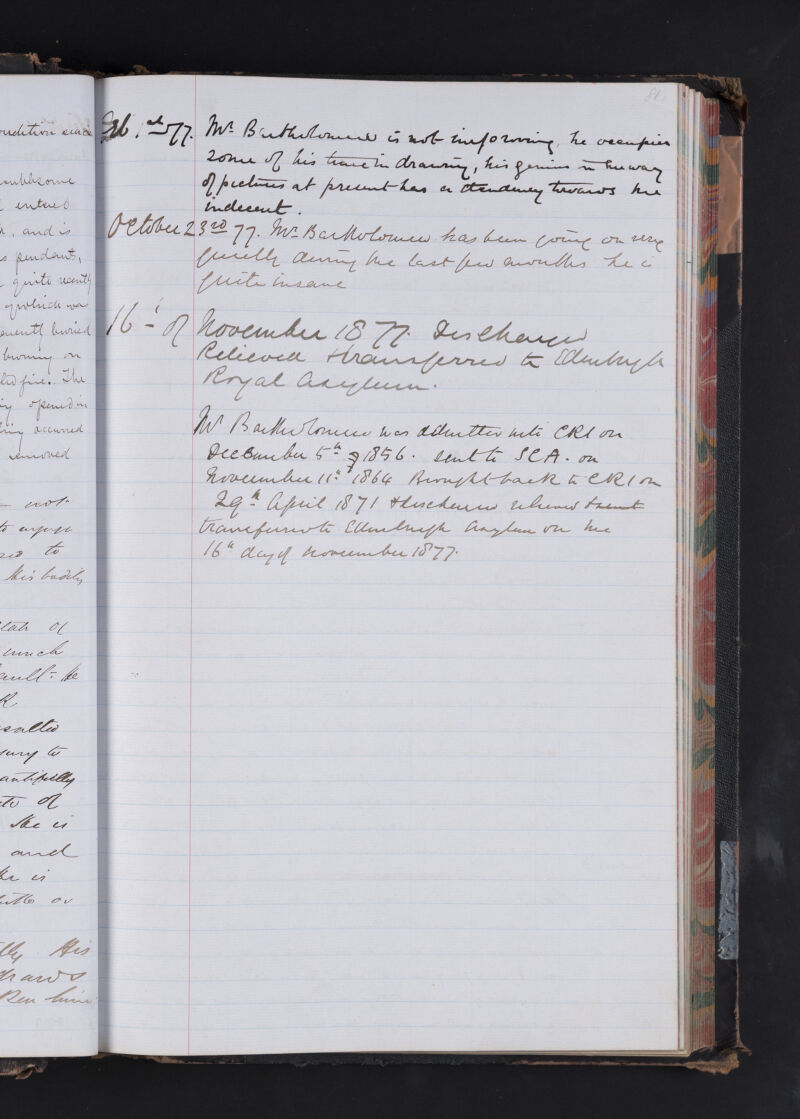 ondition and
oublesome
entered
, and is
s pendant,
quite recently
which was
quently buried
burning on
fire. The
opened in
occurred
removed
not
to
to
His bodily
state of
much
fault. He
to
autifully
of
He is
and
He is
or
His
draws
81
Feb 1st 77. Mr Bartholomew is not improving, he occupies
some of his time in drawing, his genius in the way
of pictures at present has a tendency towards the
indecent.
October 23rd 77. Mr Bartholomew has been going on very
quietly during the last few months he is
quite insane
16th of November 1877. Discharged
Relieved & transferred to Edinburgh
Royal Asylum.
Mr Bartholomew was admitted into CRI on
December 5th 1856. sent to SCA. on
November 11th 1864 Brought back to CRI on
29th April 1871 & discharged relieved &
transferred to Edinburgh Asylum on the
16th day of November 1877.